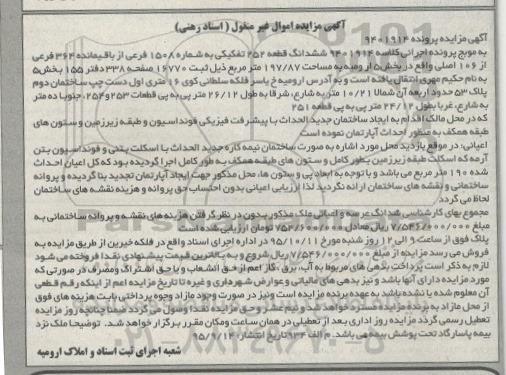 آگهی مزایده اموال غیر منقول (اسناد رهنی)
آگهی مزایده پرونده ۹۴۰۱۹۱۴
به موجب پرونده اجرائی کلاسه ۹۴۰۱۹۱۴ ششدانگ قطعه ۲۵۲ تفکیکی به شماره ۱۵۰۸ فرعی از باقیمانده ۳۶۴ فرعی
از ۱۰۶ اصلی واقع در بخش ۵ ارومیه به مساحت ۱۹۷/۸۷ متر مربع ذیل ثبت ۱۶۷۷۰ صفحه ۳۳۸ دفتر ۱۵۵ بخش ۵
به نام حکیم مهری انتقال یافته است و به آدرس ارومیه خ یاسر فلکه سلطانی کوی ۱۶ متری اول دست چپ ساختمان دوم
پلاک ۵۳ حدود اربعه آن شمالا ۱۰/۲۱ متر به شارع، شرقا به طول ۲۶/۱۲ متر پی به پی قطعات ۲۵۳ و ۲۵۴، جنوبا ده متر
به شارع، غربا بطول ۲۴/۱۲ متر پی به پی قطعه ۲۵۱
که در محل مالک اقدام به ایجاد ساختمان جدید الحداث با پیشرفت فیزیکی فونداسیون و طبقه زیرزمین و ستون های
طبقه همکف به منظور احداث آپارتمان نموده است
اعیانی: در موقع بازدید محل مورد اشاره به صورت ساختمان نیمه کاره جدید الحداث با اسکلت بتنی و فونداسیون بتن
آرمه که اسکلت طبقه زیرزمین بطور کامل و ستون های طبقه همکف به طور کامل اجرا گردیده بود که کل اعیان احداث
شده ۱۹۰ متر مربع می باشد و با توجه به ابعاد پی و ستون ها، محل مذکور جهت ایجاد آپارتمان تجدید بنا گردیده و پروانه
ساختمانی و نقشه های ساختمان ارائه نگردید لذا ارزیابی اعیانی بدون احتساب حق پروانه و هزینه نقشه های ساختمان
لحاظ می گردد
مجموع بهای کارشناسی ششدانگ عرصه و اعیانی ملک مذکور بدون در نظر گرفتن هزینه های نقشه و پروانه ساختمانی به
مبلغ ۷/۵۴۶/۰۰۰/۰۰۰ ریال معادل ۷۵۴/۶۰۰/۰۰۰ تومان ارزیابی شده است
پلاک فوق از ساعت ۹ الی ۱۲ روز شنبه مورخ ۹۵/۱۰/۱۱ در اداره اجرای اسناد واقع در فلکه خیرین از طریق مزایده به
فروش می رسد مزایده از مبلغ ۷/۵۴۶/۰۰۰/۰۰۰ ریال شروع و به بالاترین قیمت پیشنهادی نقدا فروخته می شود
لازم به ذکر است پرداخت بدهی های مربوط به آب، برق، گاز اعم از حق انشعاب و یا حق اشتراک و مصرف در صورتی که
مورد مزایده دارای آنها باشد و نیز بدهی های مالیاتی و عوارض شهرداری و غیره تا تاریخ مزایده اعم از اینکه رقم قطعی
آن معلوم شده یا نشده باشد به عهده برنده مزایده است و نیز در صورت وجود مازاد وجوه پرداختی بابت هزینه های فوق
از محل مازاد به برنده مزایده مسترد خواهد شد و نیم عشر و حق مزایده نقدا وصول می گردد ضمنا چنانچه روز مزایده
تعطیل رسمی گردد مزایده روز اداری بعد از تعطیلی در همان ساعت و مکان مقرر برگزار خواهد شد. توضیحا ملک نزد
بیمه پاسارگاد تحت پوشش بیمه می باشد. م الف ۹۳۴ تاریخ انتشار: ۹۵/۹/۱۴
شعبه اجرای ثبت اسناد و املاک ارومیه